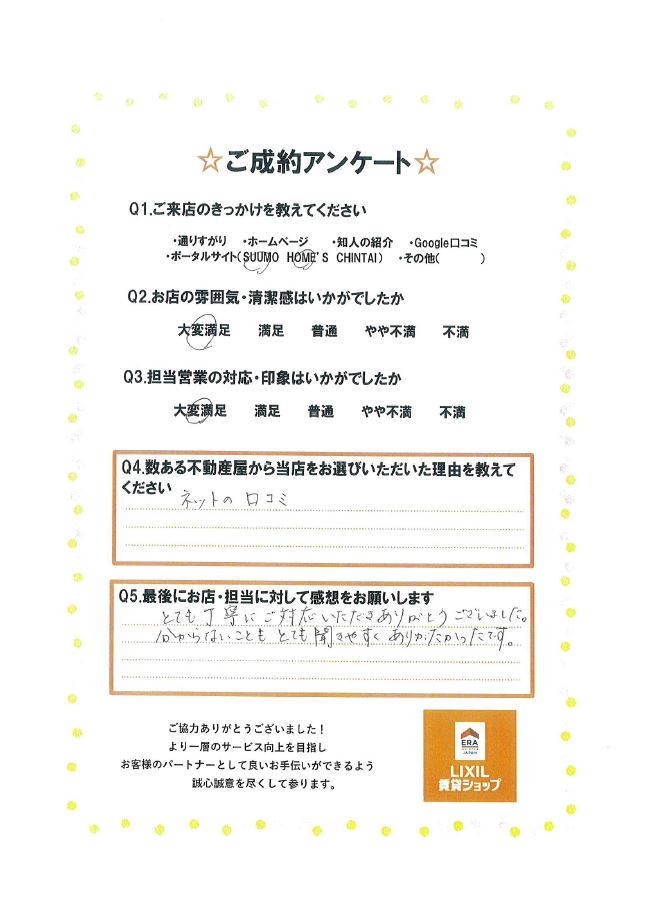 ☆ご成約アンケート☆
Q1.ご来店のきっかけを教えてください
・通りすがり ・ホームページ ・知人の紹介 ・Google口コミ
・ポータルサイト(SUUMO HOME'S CHINTAI) ・その他( )
Q2.お店の雰囲気・清潔感はいかがでしたか
大変満足 満足 普通 やや不満 不満
Q3.担当営業の対応・印象はいかがでしたか
大変満足 満足 普通 やや不満 不満
Q4.数ある不動産屋から当店をお選びいただいた理由を教えて
ください
ネットの口コミ
Q5.最後にお店・担当に対して感想をお願いします
とても丁寧にご対応いただきありがとうございました。
分からないこともとても聞きやすくありがたかったです。
ご協力ありがとうございました！
より一層のサービス向上を目指し
お客様のパートナーとして良いお手伝いができるよう
誠心誠意を尽くして参ります。
ERA
JAPAN
LIXIL
賃貸ショップ